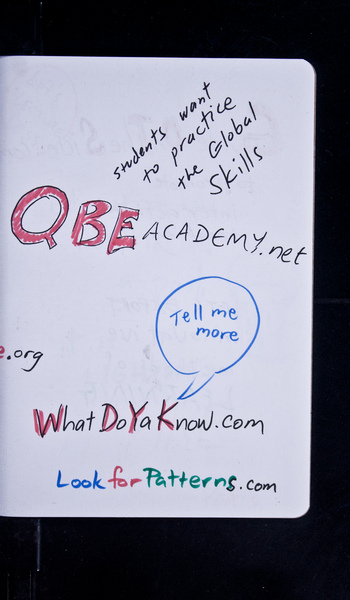 students want
to practice
the Global
Skills
QBE ACADEMY.net
Tell me
more
e.org
WhatDoYaKnow.com
LookforPatterns.com